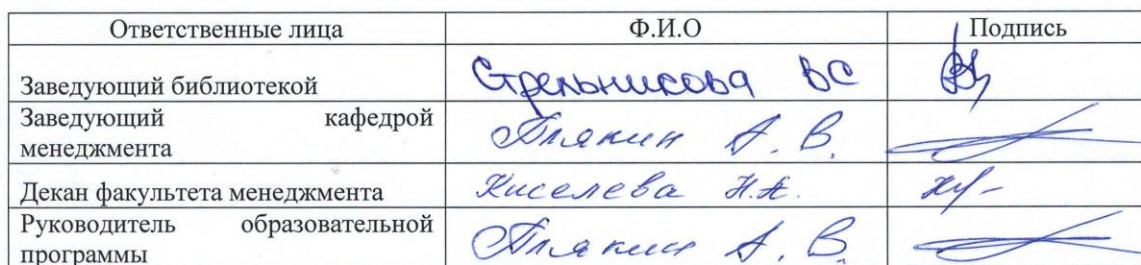 Ответственные лица Ф.И.О Подпись
Заведующий библиотекой Стрельникова ВС
Заведующий кафедрой
менеджмента Плякин А. В.
Декан факультета менеджмента Киселева Н.А.
Руководитель образовательной
программы Плякин А. В.